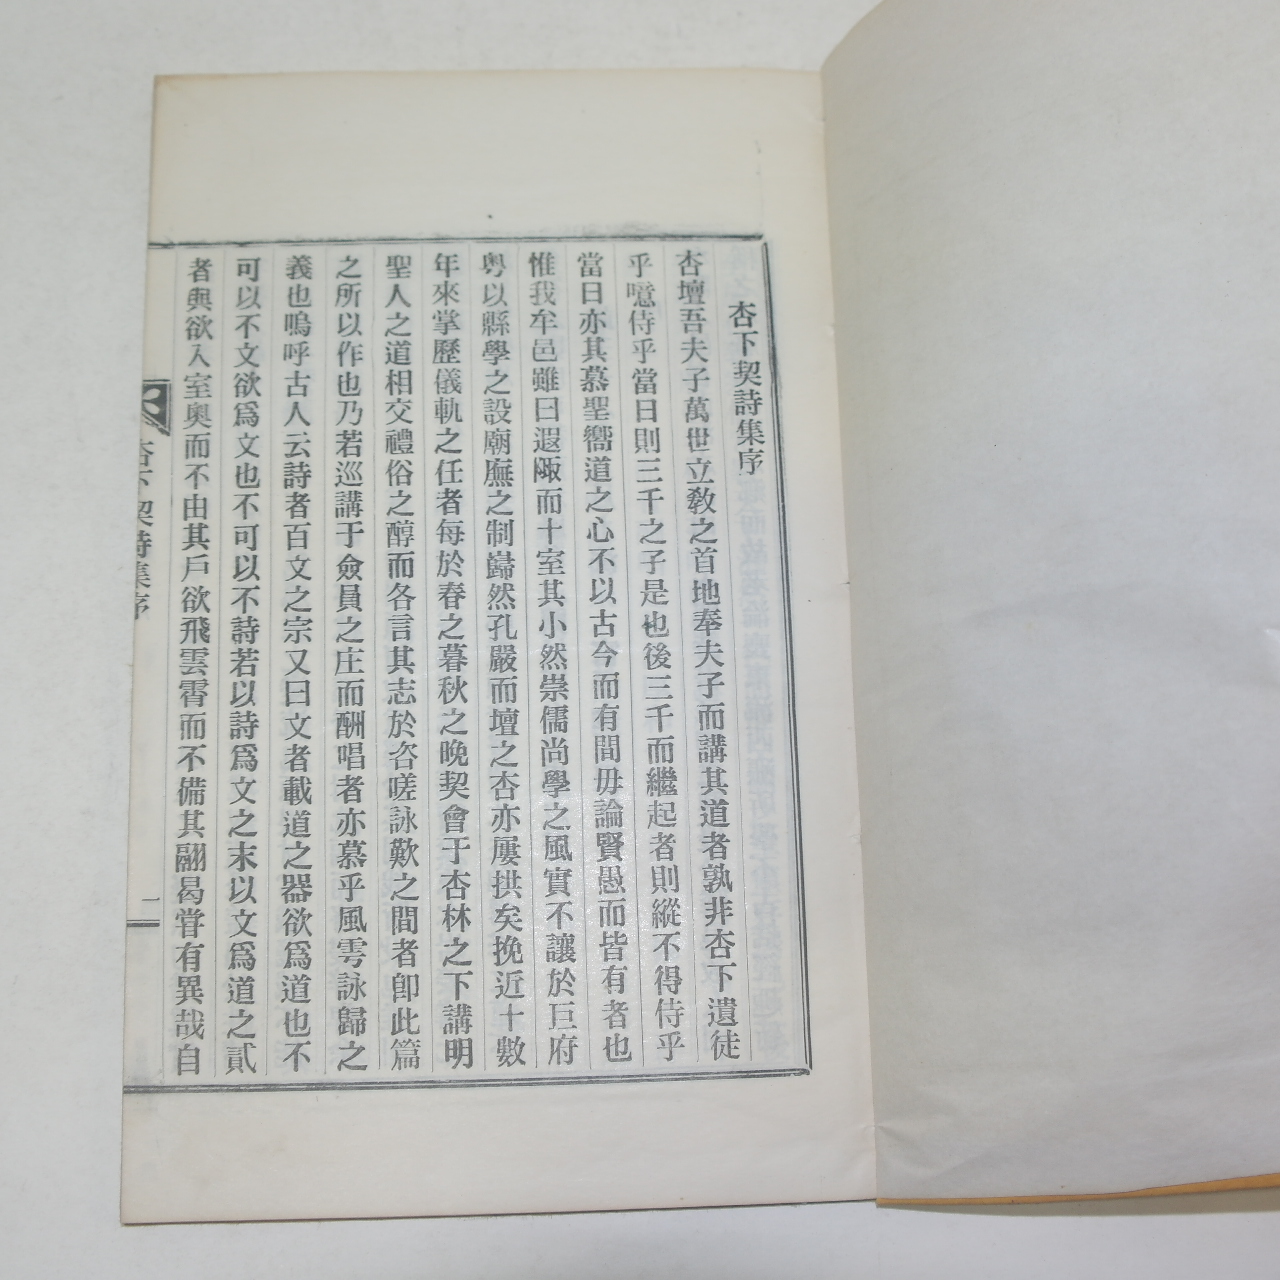 杏下契詩集序
杏壇吾夫子萬世立敎之首地奉夫子而講其道者孰非杏下遺徒
乎噫侍乎當日則三千之子是也後三千而繼起者則縱不得侍乎
當日亦其慕聖嚮道之心不以古今而有間毋論賢愚而皆有者也
惟我牟邑雖曰遐陬而十室其小然崇儒尙學之風實不讓於巨府
粤以縣學之設廟廡之制巋然孔嚴而壇之杏亦屢拱矣挽近十數
年來掌歷儀軌之任者每於春之暮秋之晚契會于杏林之下講明
聖人之道相交禮俗之醇而各言其志於咨嗟詠歎之間者卽此篇
之所以作也乃若巡講于僉員之庄而酬唱者亦慕乎風雩詠歸之
義也嗚呼古人云詩者百文之宗又曰文者載道之器欲爲道也不
可以不文欲爲文也不可以不詩若以詩爲文之末以文爲道之貳
者與欲入室奧而不由其戶欲飛雲霄而不備其翮曷嘗有異哉自
杏下契詩集序
一